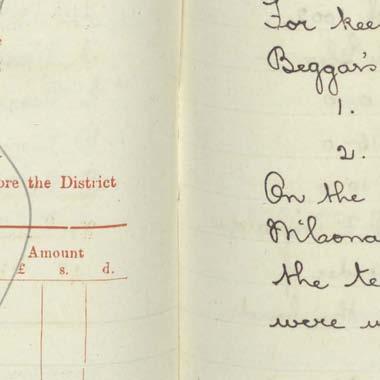 ore the District
Amount
£ s. d.
For kee
Beggar's
1.
2.
On the
the te
were u